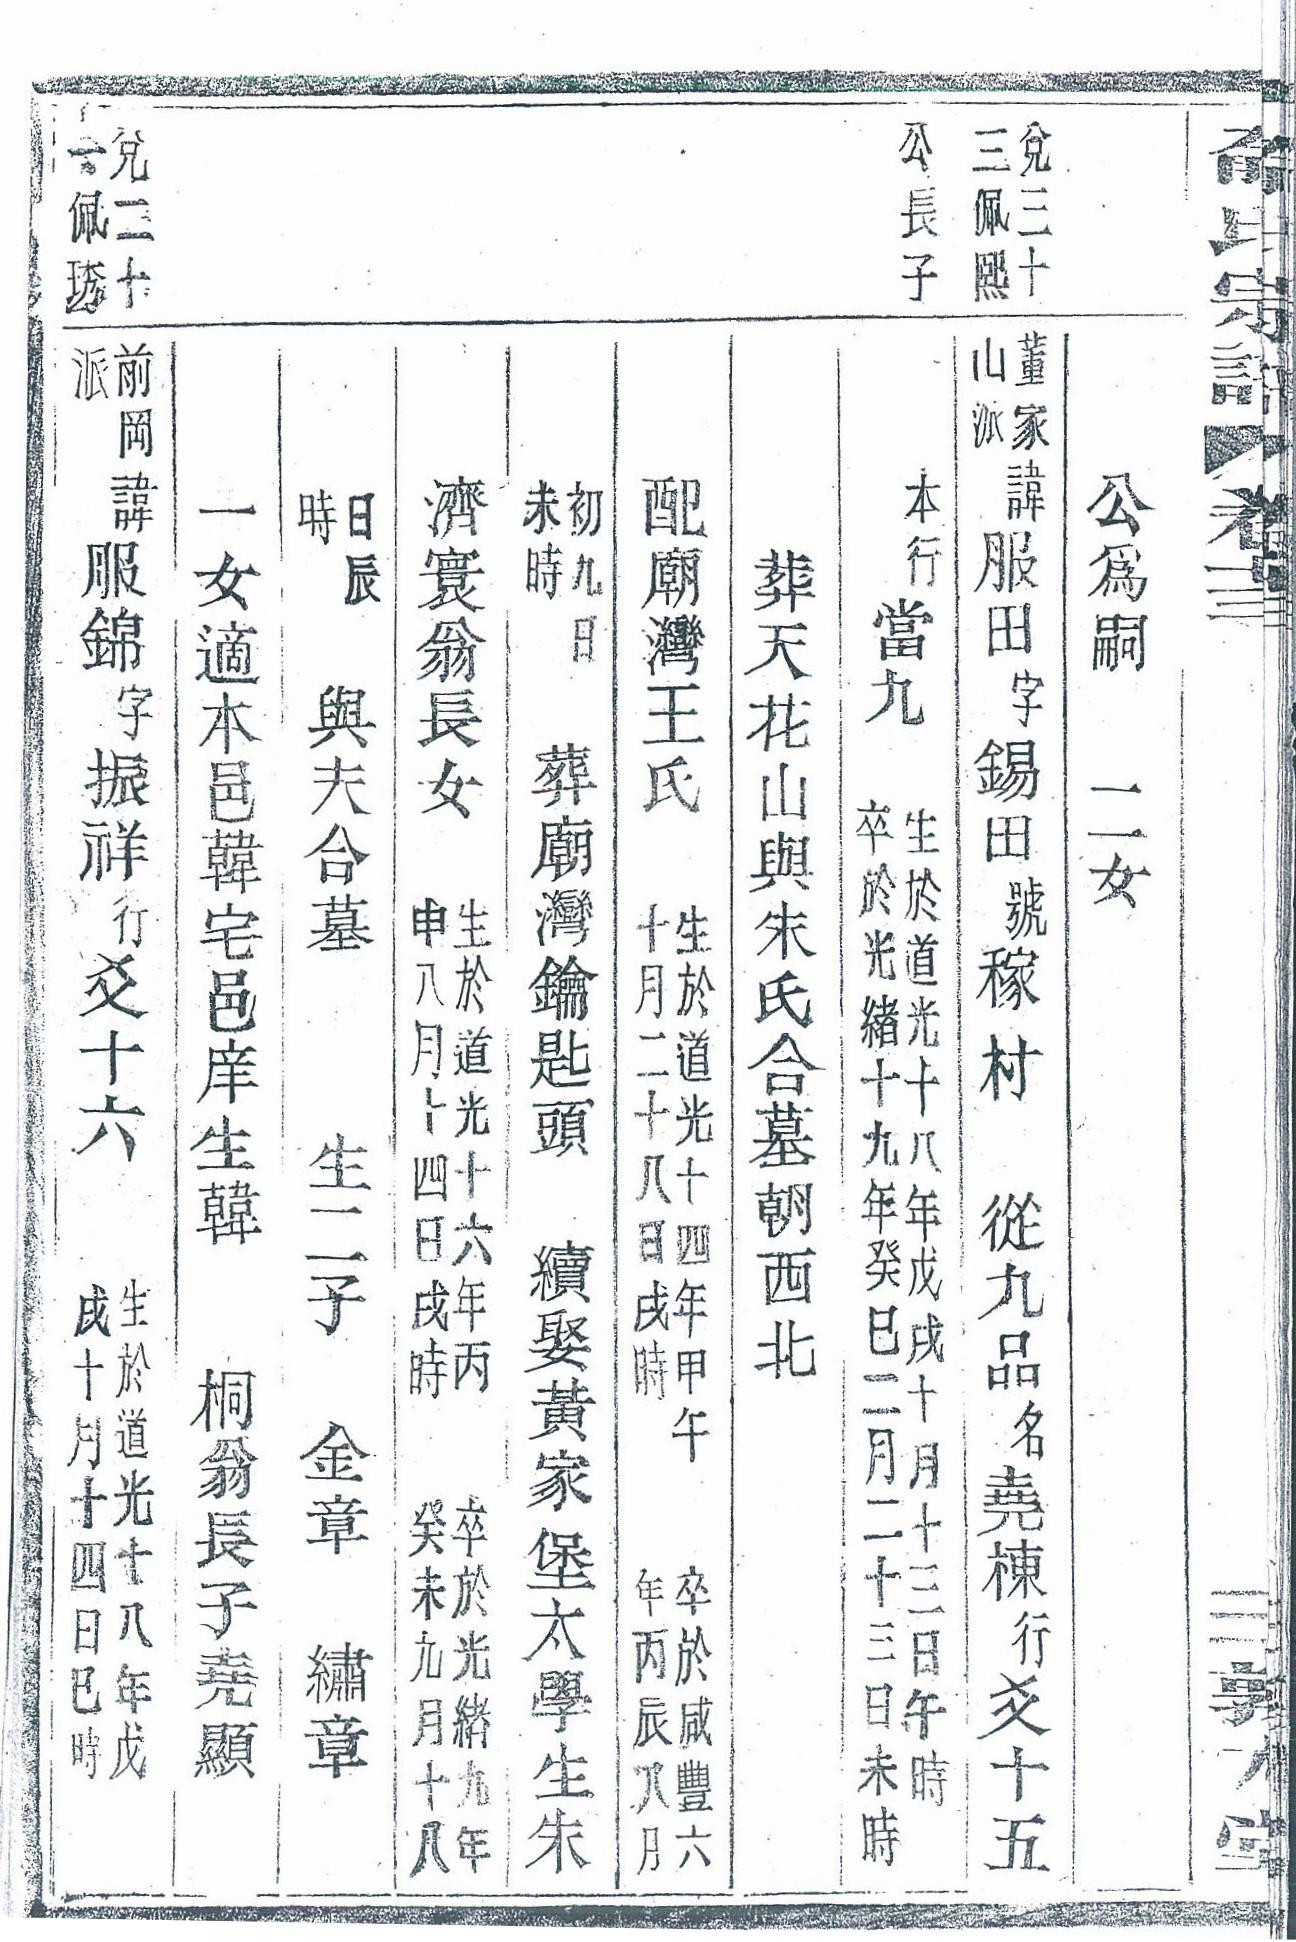 氏宗譜
卷二三
三
公爲嗣 二女
兌三十三佩熙
董家山派 諱服田字錫田號稼村 從九品名堯棟行爻十五
公長子
本行當九 生於道光十八年戊戌十月十三日午時
卒於光緒十九年癸巳二月二十三日未時
葬天花山與朱氏合墓朝西北
配廟灣王氏 生於道光十四年甲午十月二十八日戌時 卒於咸豐六年丙辰八月
初九日未時 葬廟灣鑰匙頭 續娶黃家堡太學生朱
濟寰翁長女 生於道光十六年丙申八月十四日戌時 卒於光緒九年癸未九月十八
日辰時 與夫合墓 生二子 金章 繡章
一女適本邑韓宅邑庠生韓 桐翁長子堯顯
兌二十六佩琇
前岡派 諱服錦字振祥行爻十六 生於道光十八年戊戌十月十四日巳時